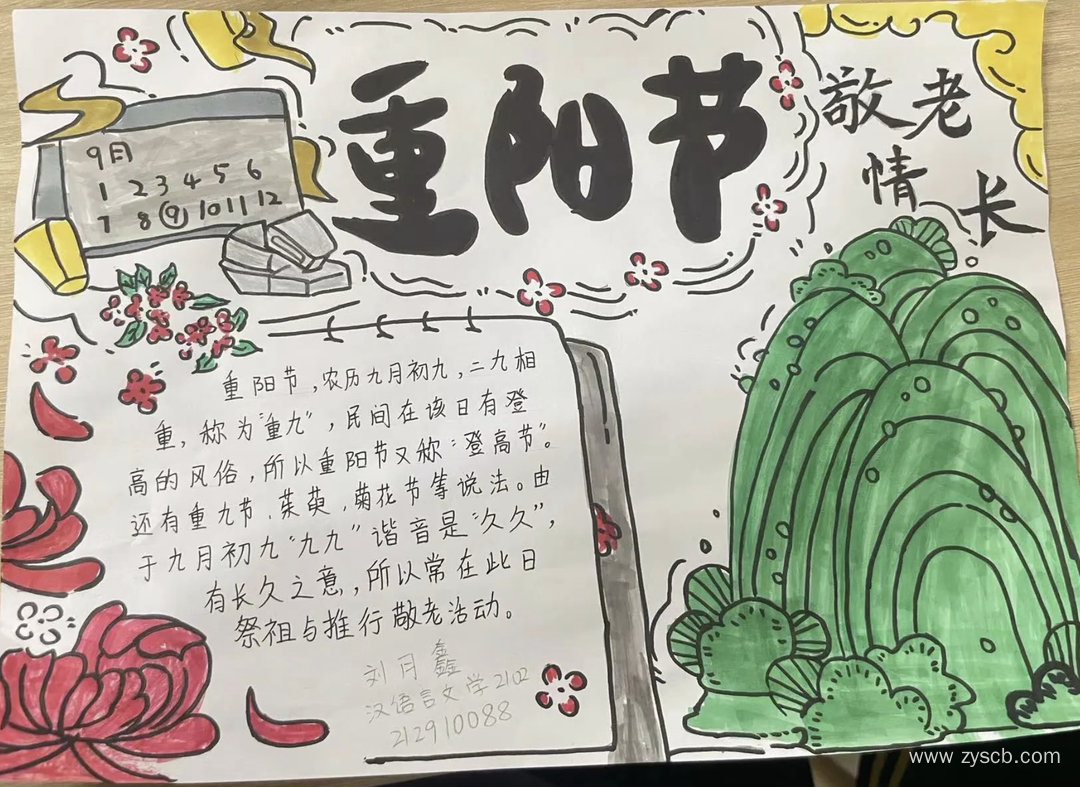 重阳节
敬老
情长
9月
1 2 3 4 5 6
7 8 9 10 11 12
重阳节，农历九月初九，二九相
重，称为"重九"，民间在该日有登
高的风俗，所以重阳节又称"登高节"。
还有重九节、茱萸、菊花节等说法。由
于九月初九"九九"谐音是"久久"，
有长久之意，所以常在此日
祭祖与推行敬老活动。
刘月鑫
汉语言文学2102
212910088
www.zyscb.com